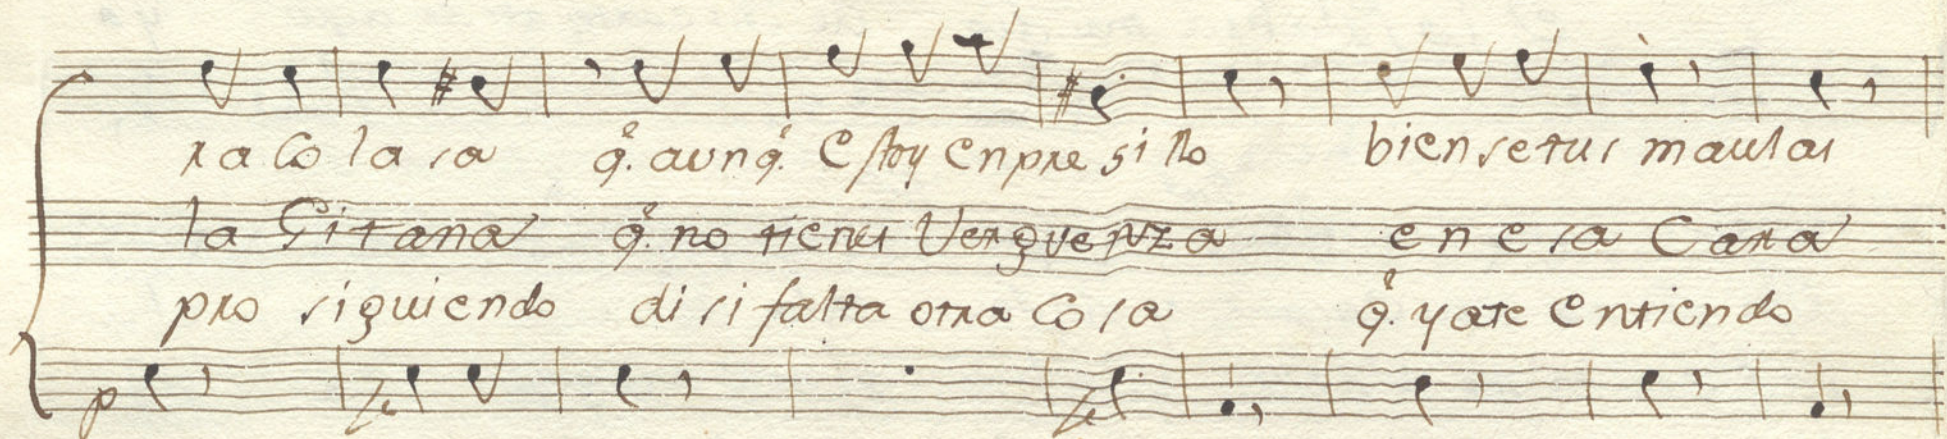 ra Co la sa q.e aunq.e Estoy en pre si llo bien se tus maulas
la Gitana q.e no tienes Verguenza en esa Cara
pro siguiendo di si falta otra Cosa q.e ya te Entiendo
p